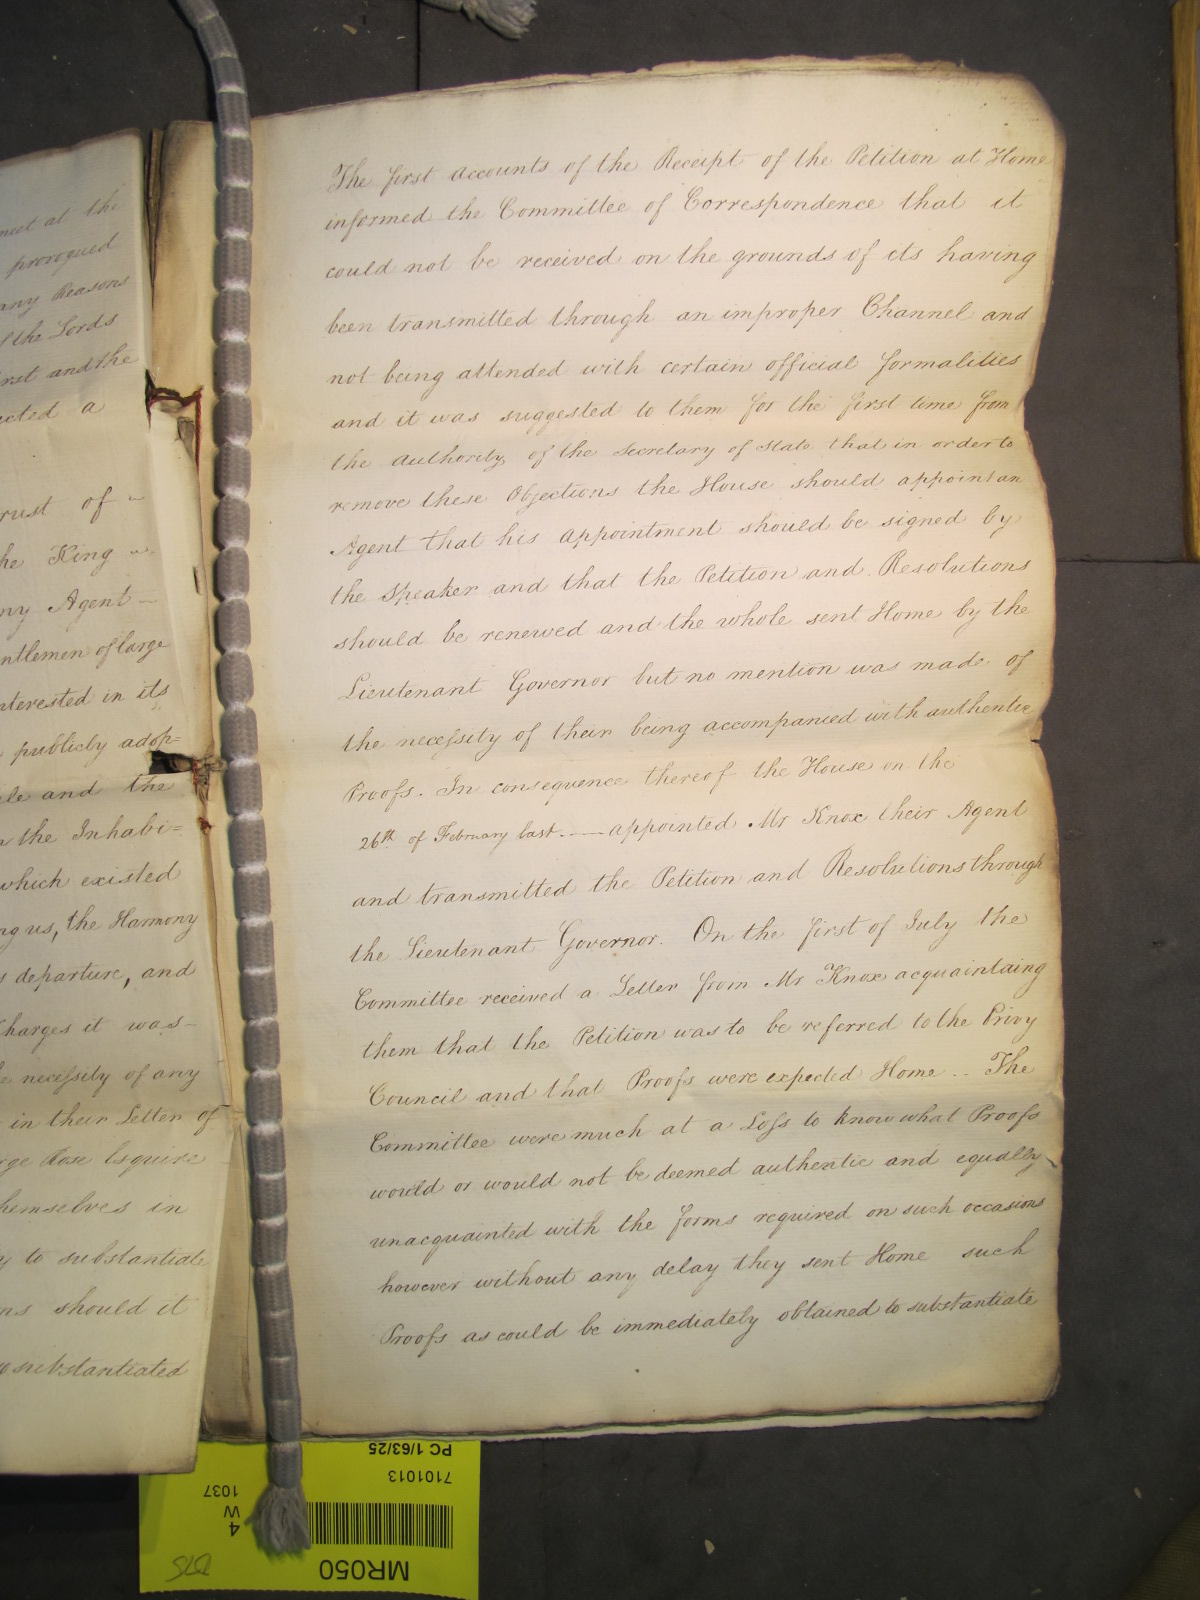 meet at the
prorogued
any Reasons
of the Lords
first and the
acted a
rust of
he King
ny Agent
ntlemen of large
nterested in its
publicly adop=
le and the
the Inhabi=
which existed
ng us, the Harmony
s departure, and
Charges it was
necessity of any
in their Letter of
rge Rose Esquire
hemselves in
to substantiate
ns should it
substantiated
The first accounts of the Receipt of the Petition at Home
informed the Committee of Correspondence that it
could not be received on the grounds of its having
been transmitted through an improper Channel and
not being attended with certain official formalities
and it was suggested to them for the first time from
the Authority of the Secretary of State that in order to
remove these Objections the House should appoint an
Agent that his appointment should be signed by
the Speaker and that the Petition and Resolutions
should be renewed and the whole sent Home by the
Lieutenant Governor but no mention was made of
the necessity of their being accompanied with authentic
Proofs. In consequence thereof the House on the
26th of February last.—appointed Mr Knox their Agent
and transmitted the Petition and Resolutions through
the Lieutenant Governor. On the first of July the
Committee received a Letter from Mr Knox acquaintaing
them that the Petition was to be referred to the Privy
Council and that Proofs were expected Home.. The
Committee were much at a Loss to know what Proofs
would or would not be deemed authentic and equally
unacquainted with the forms required on such occasions
however without any delay they sent Home such
Proofs as could be immediately obtained to substantiate
PC 1/63/25
7101013
4
W
1037
MR050